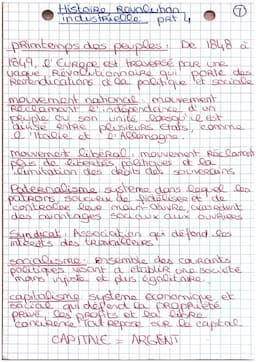 Histoire Révolution
industrielle part 4
7
printemps des peuples : De 1848 à
1849, l'Europe est traversé par une
vague Révolutionnaire qui porte des
Revendications à la politique et sociale
mouvement national : mouvement
réclamant l'indépendance d'un
peuple ou son unité lorsqu'il est
divisé entre plusieurs états, comme
l'Italie et l'Allemagne.
mouvement libéral : mouvement réclamant
plus de libertés politiques et la
limitation des droits des souverains
Paternalisme système dans lequel les
patrons, soucieux de fidéliser et de
contrôler leur main-d'œuvre, accordent
des avantages sociaux aux ouvriers
Syndicat : Association qui défend les
intérêts des travailleurs.
socialisme : ensemble des courants
politiques visant à établir une société
moins injuste et plus égalitaire.
capitalisme : système économique et
social qui défend la PROPRIÉTÉ
privé, les profits et la libre
concurence Tout repose sur le capital.
CAPITALE = ARGENT